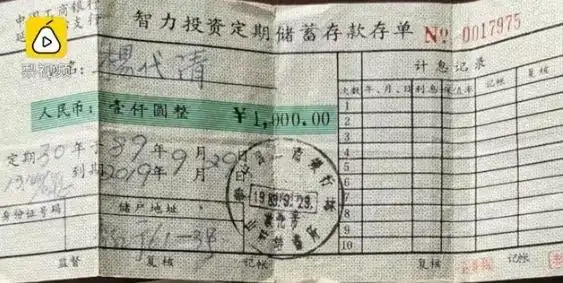 中国工商银行
智力投资定期储蓄存款存单
No 0017975
名：杨代清
人民币：壹仟圆整 ￥1,000.00
定期30年于89年9月29日
到期2019年9月29日
身份证号码
储户地址
1989.9.29.
监督 复核 记帐
计息记录
次数 年、月、日 利息 保值率 记帐 复核
1
2
3
4
5
6
7
8
9
10
复核 记帐